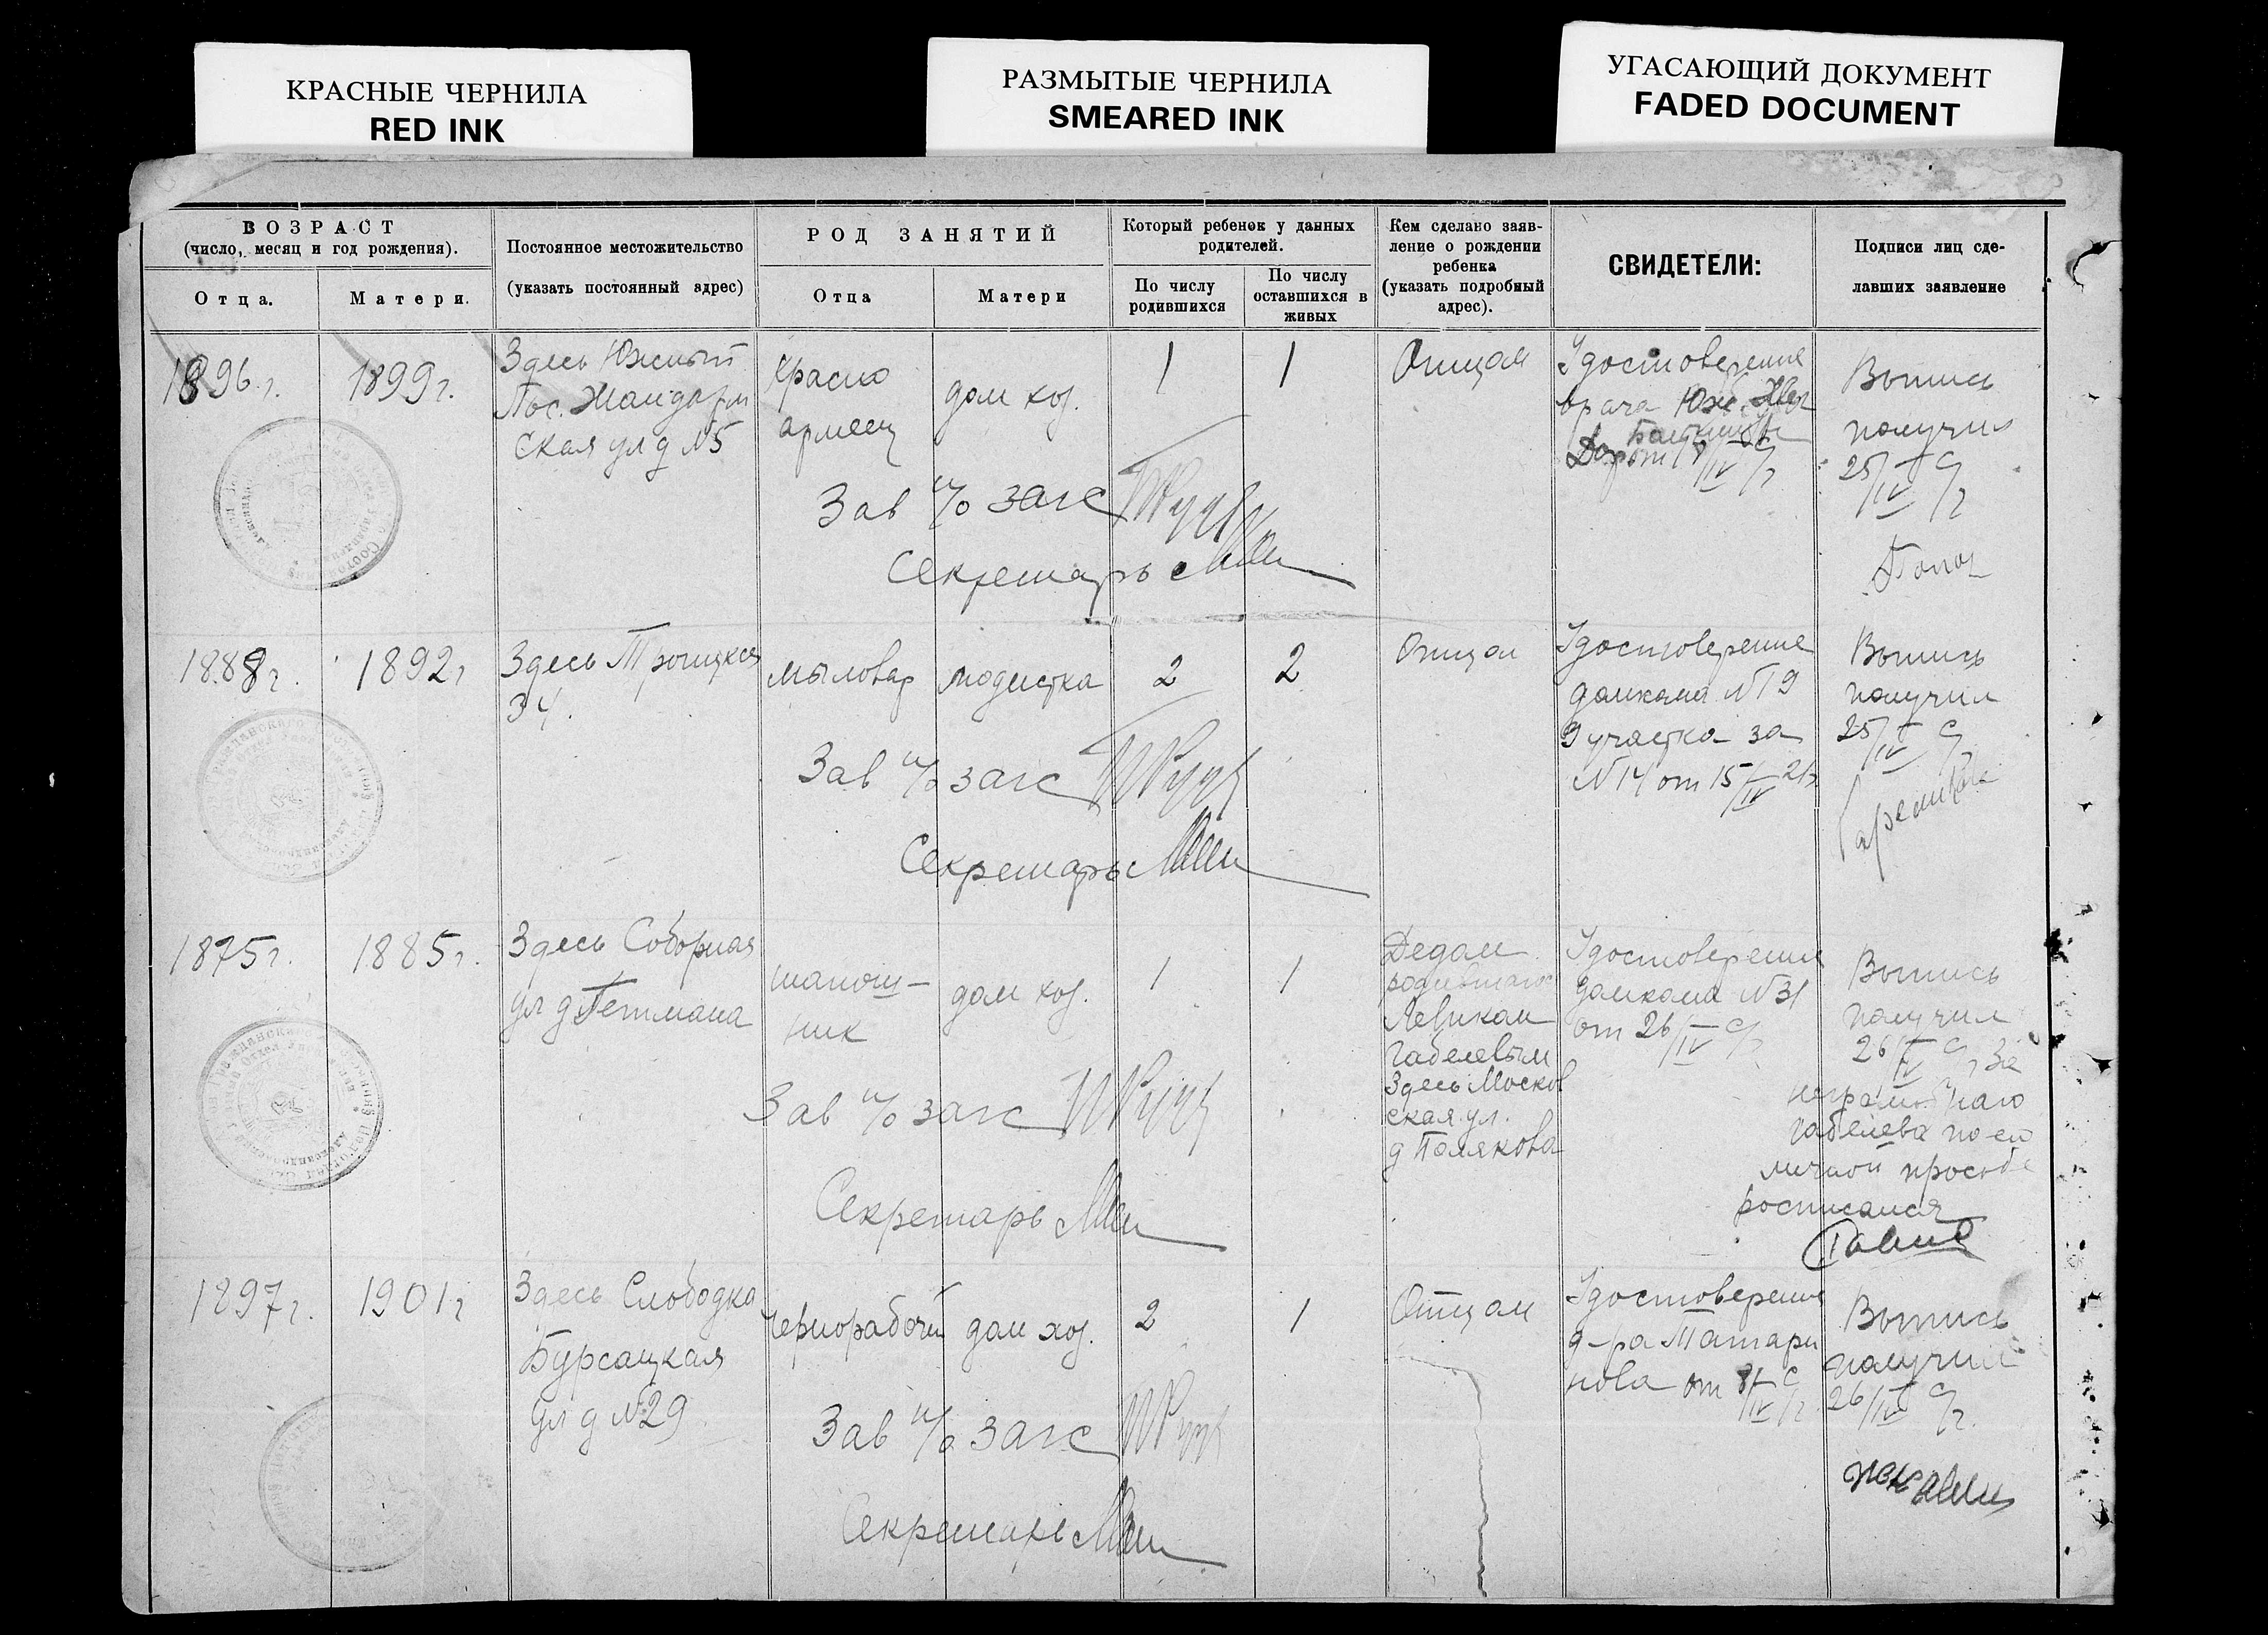 КРАСНЫЕ ЧЕРНИЛА
RED INK
РАЗМЫТЫЕ ЧЕРНИЛА
SMEARED INK
УГАСАЮЩИЙ ДОКУМЕНТ
FADED DOCUMENT
ВОЗРАСТ
(число, месяц и год рождения).
Отца.
Матери.
Постоянное местожительство
(указать постоянный адрес)
РОД ЗАНЯТИЙ
Отца
Матери
Который ребенок у данных
родителей.
По числу
родившихся
По числу
оставшихся в
живых
Кем сделано заяв-
ление о рождении
ребенка
(указать подробный
адрес).
СВИДЕТЕЛИ:
Подписи лиц сде-
лавших заявление
1896 г.
1899 г.
Здесь Южный
Пос. Жандарм
ская ул д №5
Красно
армеец
дом хоз.
1
1
Отцом
Удостоверение
врача Юж.
от
IV
Выпись
получил
25/IV с/г
Зав п/о загс
Секретарь
1888 г.
1892 г
Здесь Троицкая
34.
мыловар
модистка
2
2
Отцом
Удостоверение
домкома №19
9 участка за
№14 от 15/IV 21г
Выпись
получил
25/IV с/г
Зав п/о загс
Секретарь
1875 г.
1885 г.
Здесь Соборная
ул д Гетмана
шапош-
ник
дом хоз.
1
1
Дедом
родившагося
Левиком
Габелевым
Здесь Москов
ская ул.
д Полякова
Удостоверение
домкома №31
от 26/IV с/г
Выпись
получил
26/IV с/г За
неграмотнаго
Габелева по его
личной просьбе
росписался
Зав п/о загс
Секретарь
1897 г.
1901 г
Здесь Слободка
Бурсацкая
ул д №29
Чернорабочий
дом хоз.
2
1
Отцом
Удостоверение
д-ра Татари
нова от 8/IV с/г
Выпись
получил
26/IV с/г.
Зав п/о загс
Секретарь